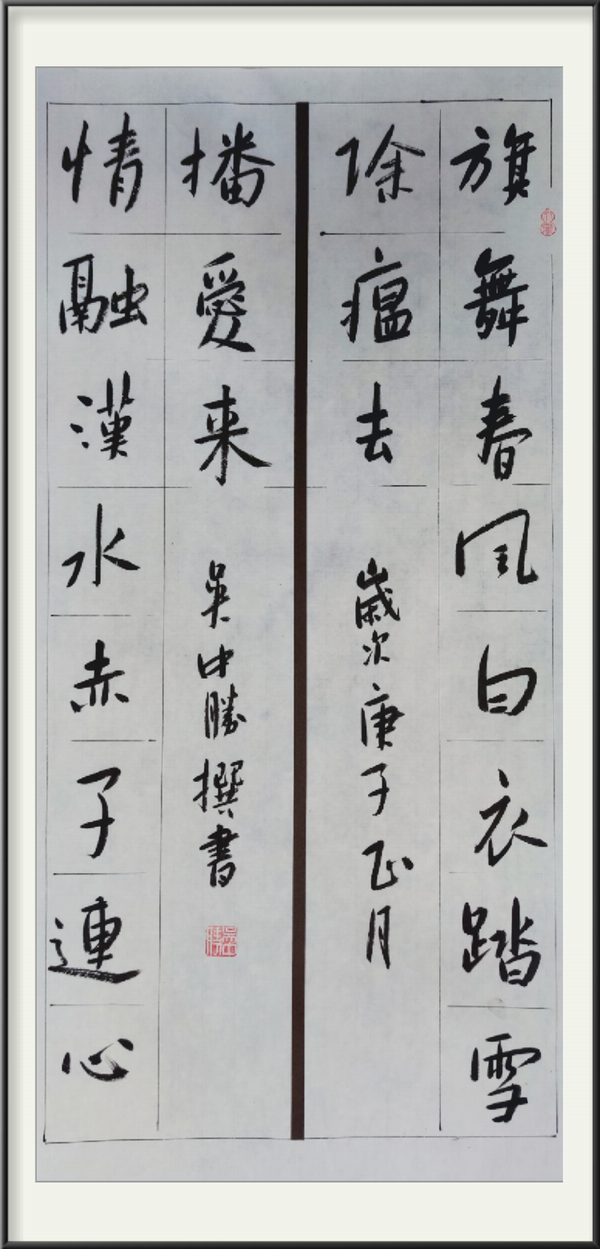 旗舞春风白衣踏雪
除瘟去
歲次庚子正月
播愛来
吴中勝撰書
情融漢水赤子連心